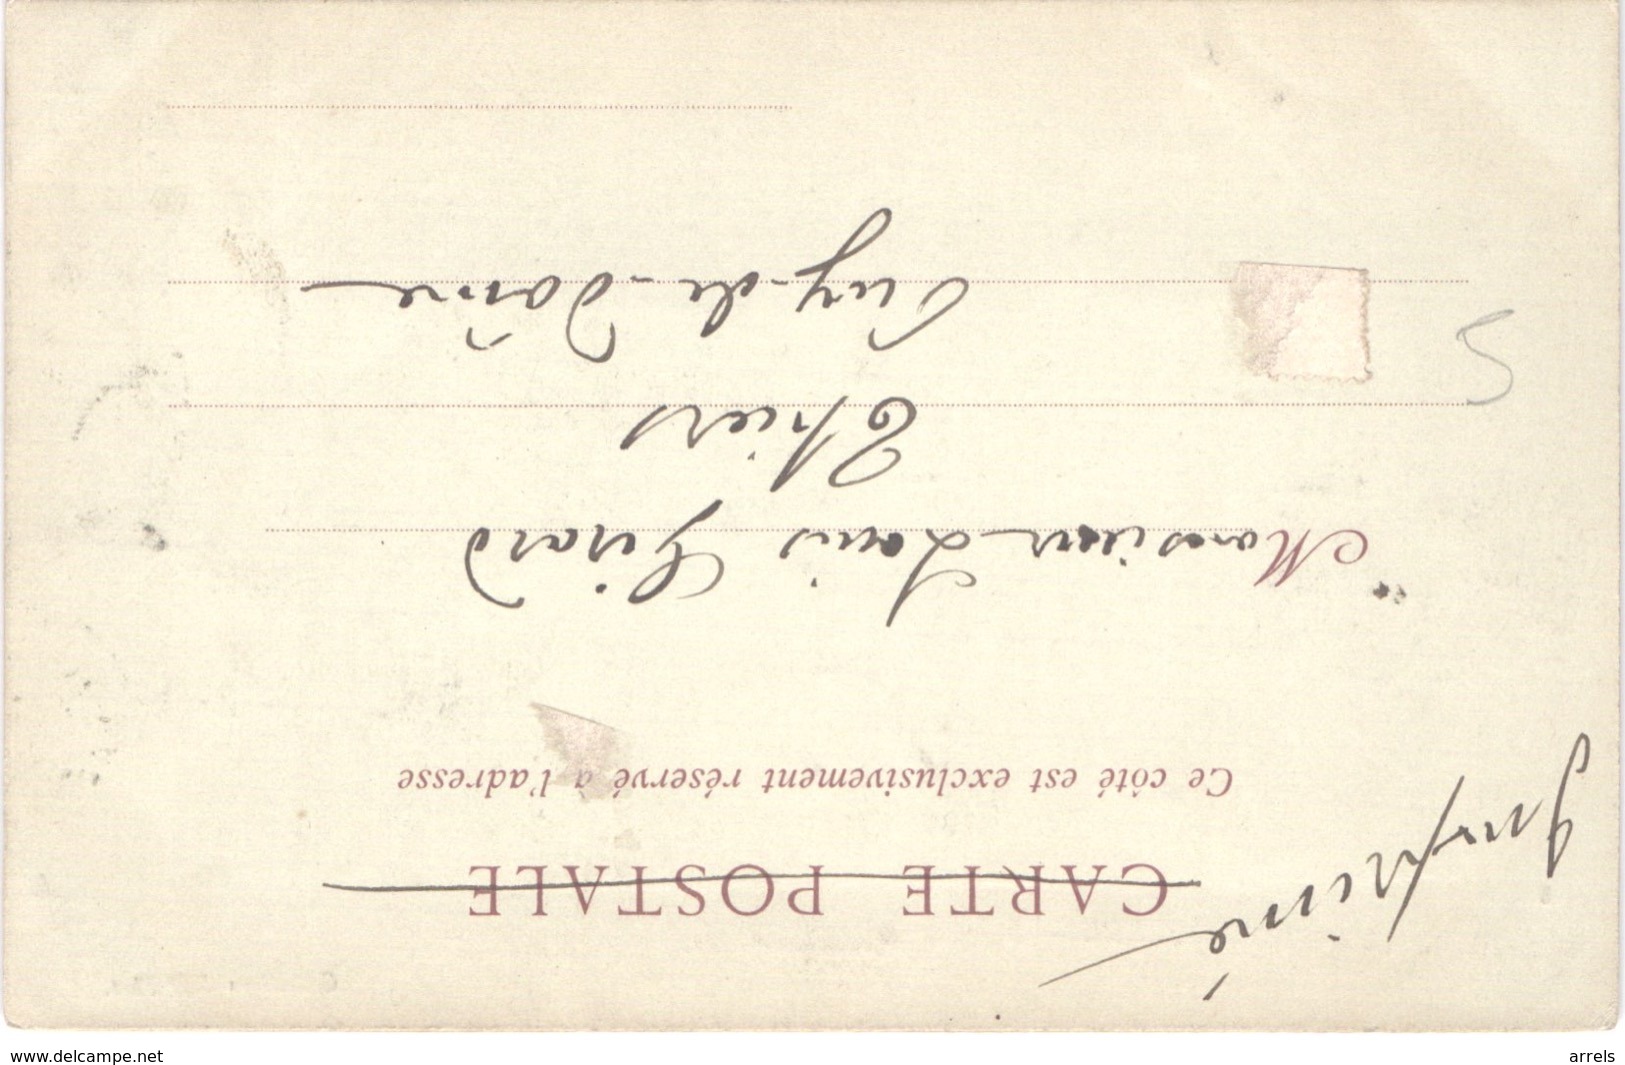 Imprimé
CARTE POSTALE
Ce côté est exclusivement réservé à l'adresse
Monsieur Louis Girard
Thiers
Puy-de-Dôme
5
www.delcampe.net
arrels